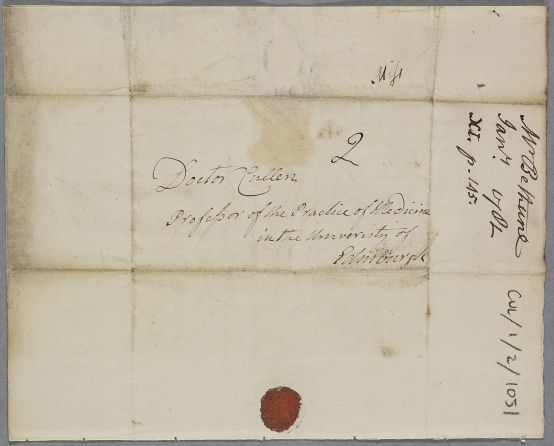 Miss
2
Doctor Cullen
Professor of the Practice of Medicine
in the University of
Edinburgh
Mr Bethune
Janry. 1782
XI. p. 145.
CUL/1/2/1051